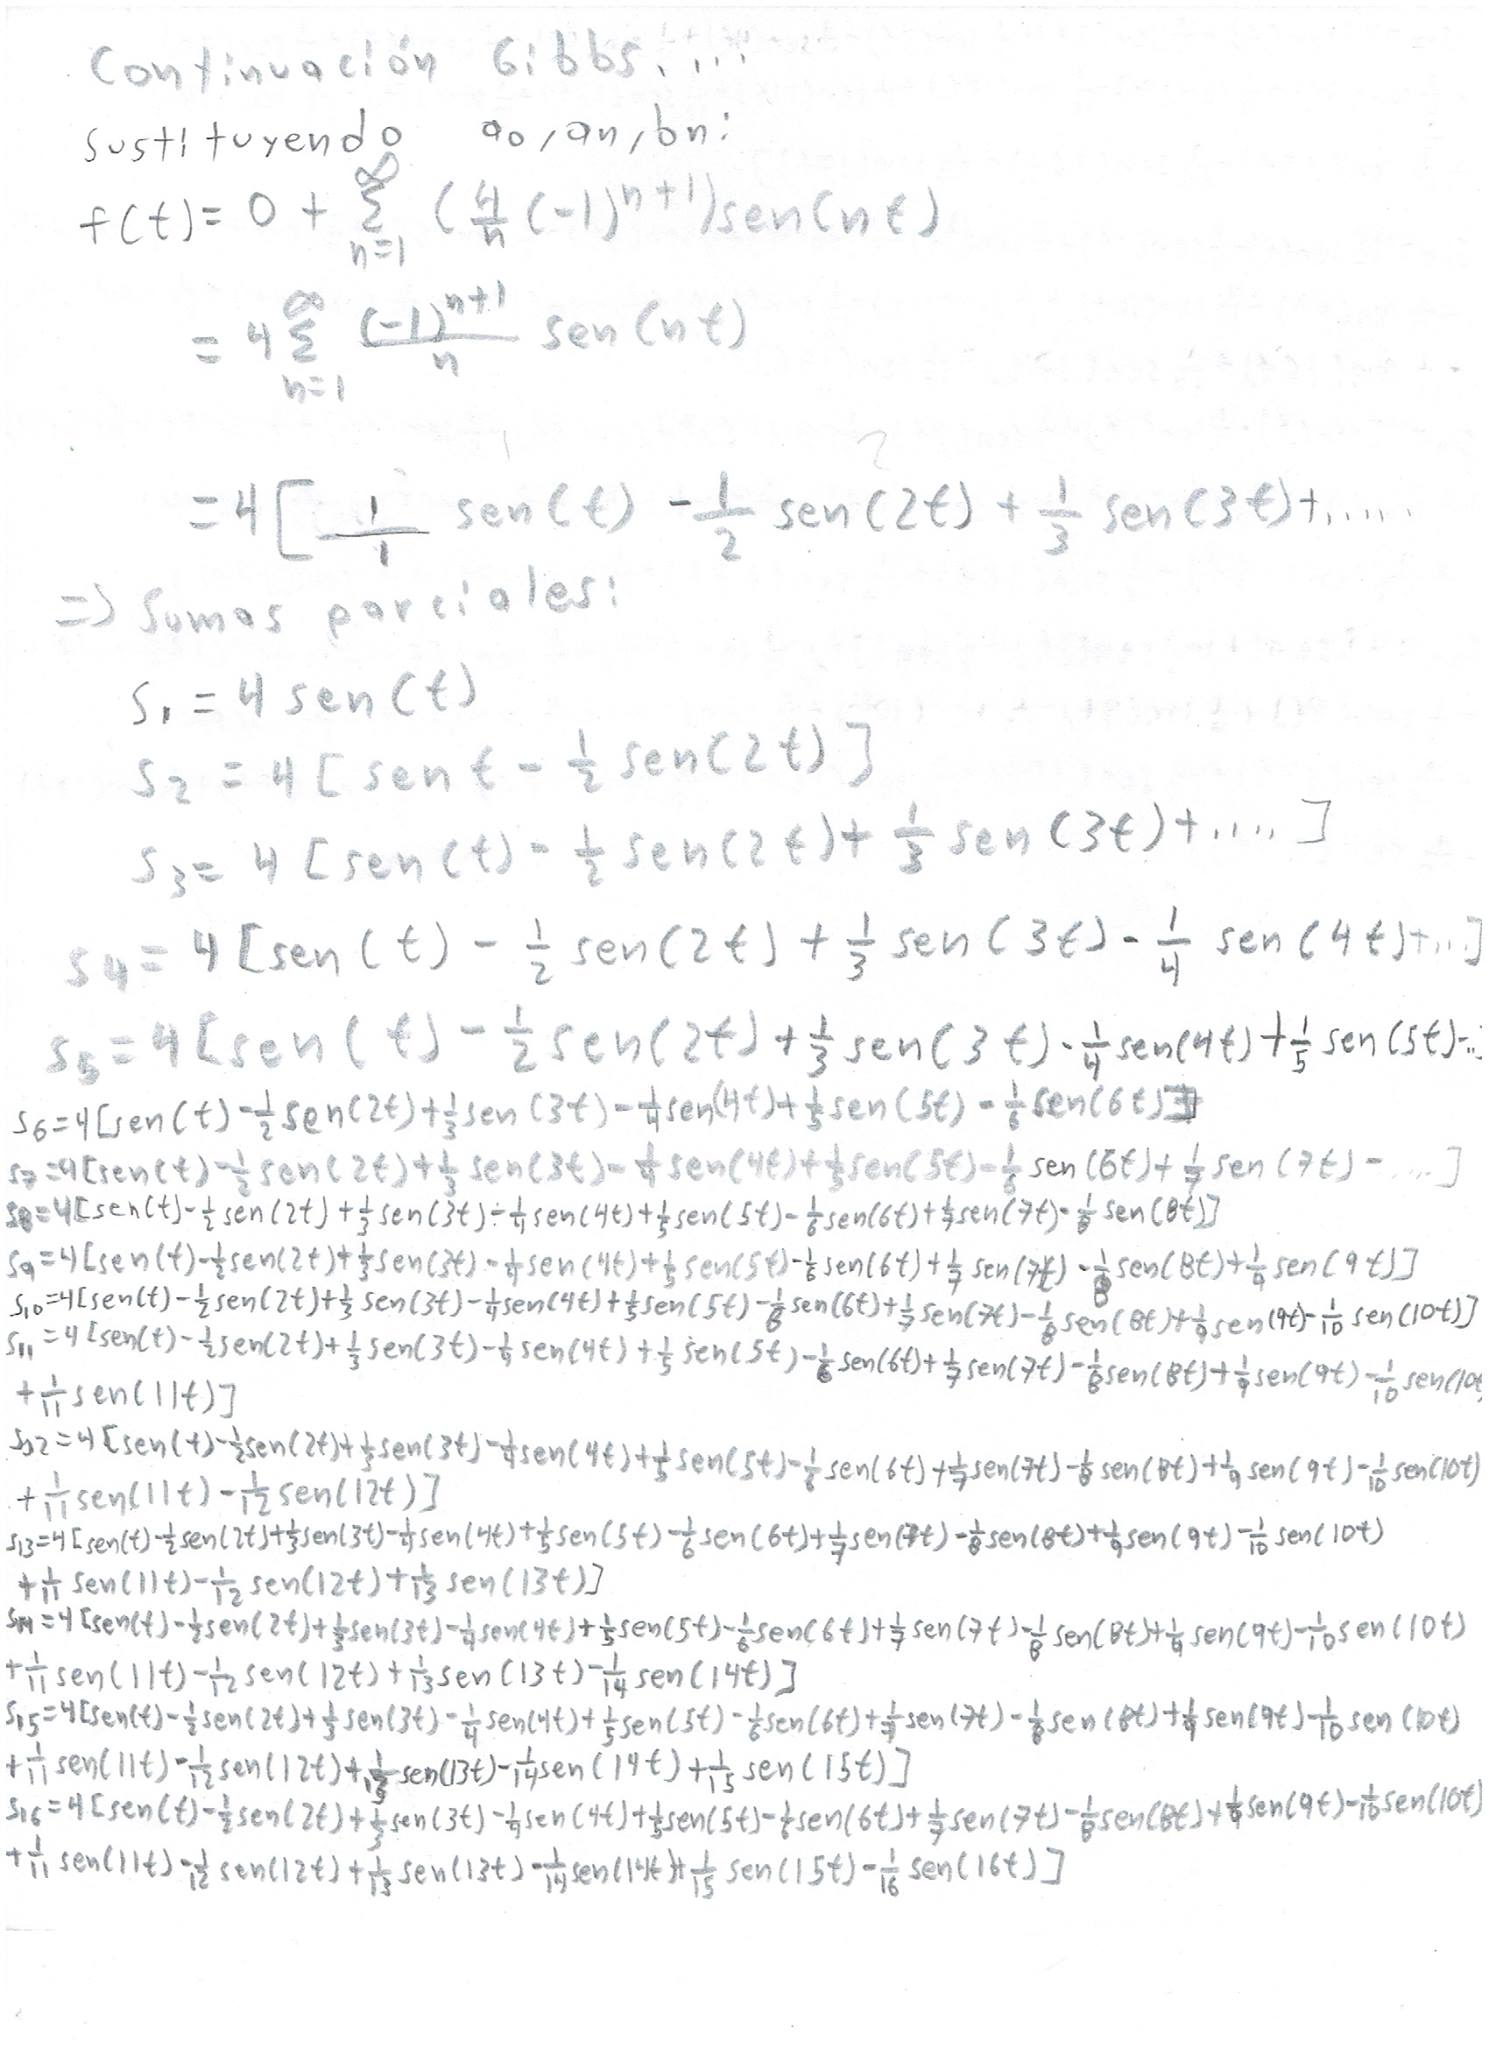 Continuación Gibbs.....
Sustituyendo a0, an, bn:
f(t) = 0 + ∑_{n=1}^{∞} (4/n (-1)^{n+1}) sen(nt)
= 4 ∑_{n=1}^{∞} (-1)^{n+1}/n sen(nt)
= 4 [ 1/1 sen(t) - 1/2 sen(2t) + 1/3 sen(3t) + ......
=> Sumas parciales:
S1 = 4 sen(t)
S2 = 4 [sen t - 1/2 sen(2t)]
S3 = 4 [sen(t) - 1/2 sen(2t) + 1/3 sen(3t) + .....]
S4 = 4 [sen(t) - 1/2 sen(2t) + 1/3 sen(3t) - 1/4 sen(4t) + ...]
S5 = 4 [sen(t) - 1/2 sen(2t) + 1/3 sen(3t) - 1/4 sen(4t) + 1/5 sen(5t) - ...
S6 = 4 [sen(t) - 1/2 sen(2t) + 1/3 sen(3t) - 1/4 sen(4t) + 1/5 sen(5t) - 1/6 sen(6t)]
S7 = 4 [sen(t) - 1/2 sen(2t) + 1/3 sen(3t) - 1/4 sen(4t) + 1/5 sen(5t) - 1/6 sen(6t) + 1/7 sen(7t) - ....]
S8 = 4 [sen(t) - 1/2 sen(2t) + 1/3 sen(3t) - 1/4 sen(4t) + 1/5 sen(5t) - 1/6 sen(6t) + 1/7 sen(7t) - 1/8 sen(8t)]
S9 = 4 [sen(t) - 1/2 sen(2t) + 1/3 sen(3t) - 1/4 sen(4t) + 1/5 sen(5t) - 1/6 sen(6t) + 1/7 sen(7t) - 1/8 sen(8t) + 1/9 sen(9t)]
S10 = 4 [sen(t) - 1/2 sen(2t) + 1/3 sen(3t) - 1/4 sen(4t) + 1/5 sen(5t) - 1/6 sen(6t) + 1/7 sen(7t) - 1/8 sen(8t) + 1/9 sen(9t) - 1/10 sen(10t)]
S11 = 4 [sen(t) - 1/2 sen(2t) + 1/3 sen(3t) - 1/4 sen(4t) + 1/5 sen(5t) - 1/6 sen(6t) + 1/7 sen(7t) - 1/8 sen(8t) + 1/9 sen(9t) - 1/10 sen(10t
+ 1/11 sen(11t)]
S12 = 4 [sen(t) - 1/2 sen(2t) + 1/3 sen(3t) - 1/4 sen(4t) + 1/5 sen(5t) - 1/6 sen(6t) + 1/7 sen(7t) - 1/8 sen(8t) + 1/9 sen(9t) - 1/10 sen(10t)
+ 1/11 sen(11t) - 1/12 sen(12t)]
S13 = 4 [sen(t) - 1/2 sen(2t) + 1/3 sen(3t) - 1/4 sen(4t) + 1/5 sen(5t) - 1/6 sen(6t) + 1/7 sen(7t) - 1/8 sen(8t) + 1/9 sen(9t) - 1/10 sen(10t)
+ 1/11 sen(11t) - 1/12 sen(12t) + 1/13 sen(13t)]
S14 = 4 [sen(t) - 1/2 sen(2t) + 1/3 sen(3t) - 1/4 sen(4t) + 1/5 sen(5t) - 1/6 sen(6t) + 1/7 sen(7t) - 1/8 sen(8t) + 1/9 sen(9t) - 1/10 sen(10t)
+ 1/11 sen(11t) - 1/12 sen(12t) + 1/13 sen(13t) - 1/14 sen(14t)]
S15 = 4 [sen(t) - 1/2 sen(2t) + 1/3 sen(3t) - 1/4 sen(4t) + 1/5 sen(5t) - 1/6 sen(6t) + 1/7 sen(7t) - 1/8 sen(8t) + 1/9 sen(9t) - 1/10 sen(10t)
+ 1/11 sen(11t) - 1/12 sen(12t) + 1/13 sen(13t) - 1/14 sen(14t) + 1/15 sen(15t)]
S16 = 4 [sen(t) - 1/2 sen(2t) + 1/3 sen(3t) - 1/4 sen(4t) + 1/5 sen(5t) - 1/6 sen(6t) + 1/7 sen(7t) - 1/8 sen(8t) + 1/9 sen(9t) - 1/10 sen(10t)
+ 1/11 sen(11t) - 1/12 sen(12t) + 1/13 sen(13t) - 1/14 sen(14t) + 1/15 sen(15t) - 1/16 sen(16t)]